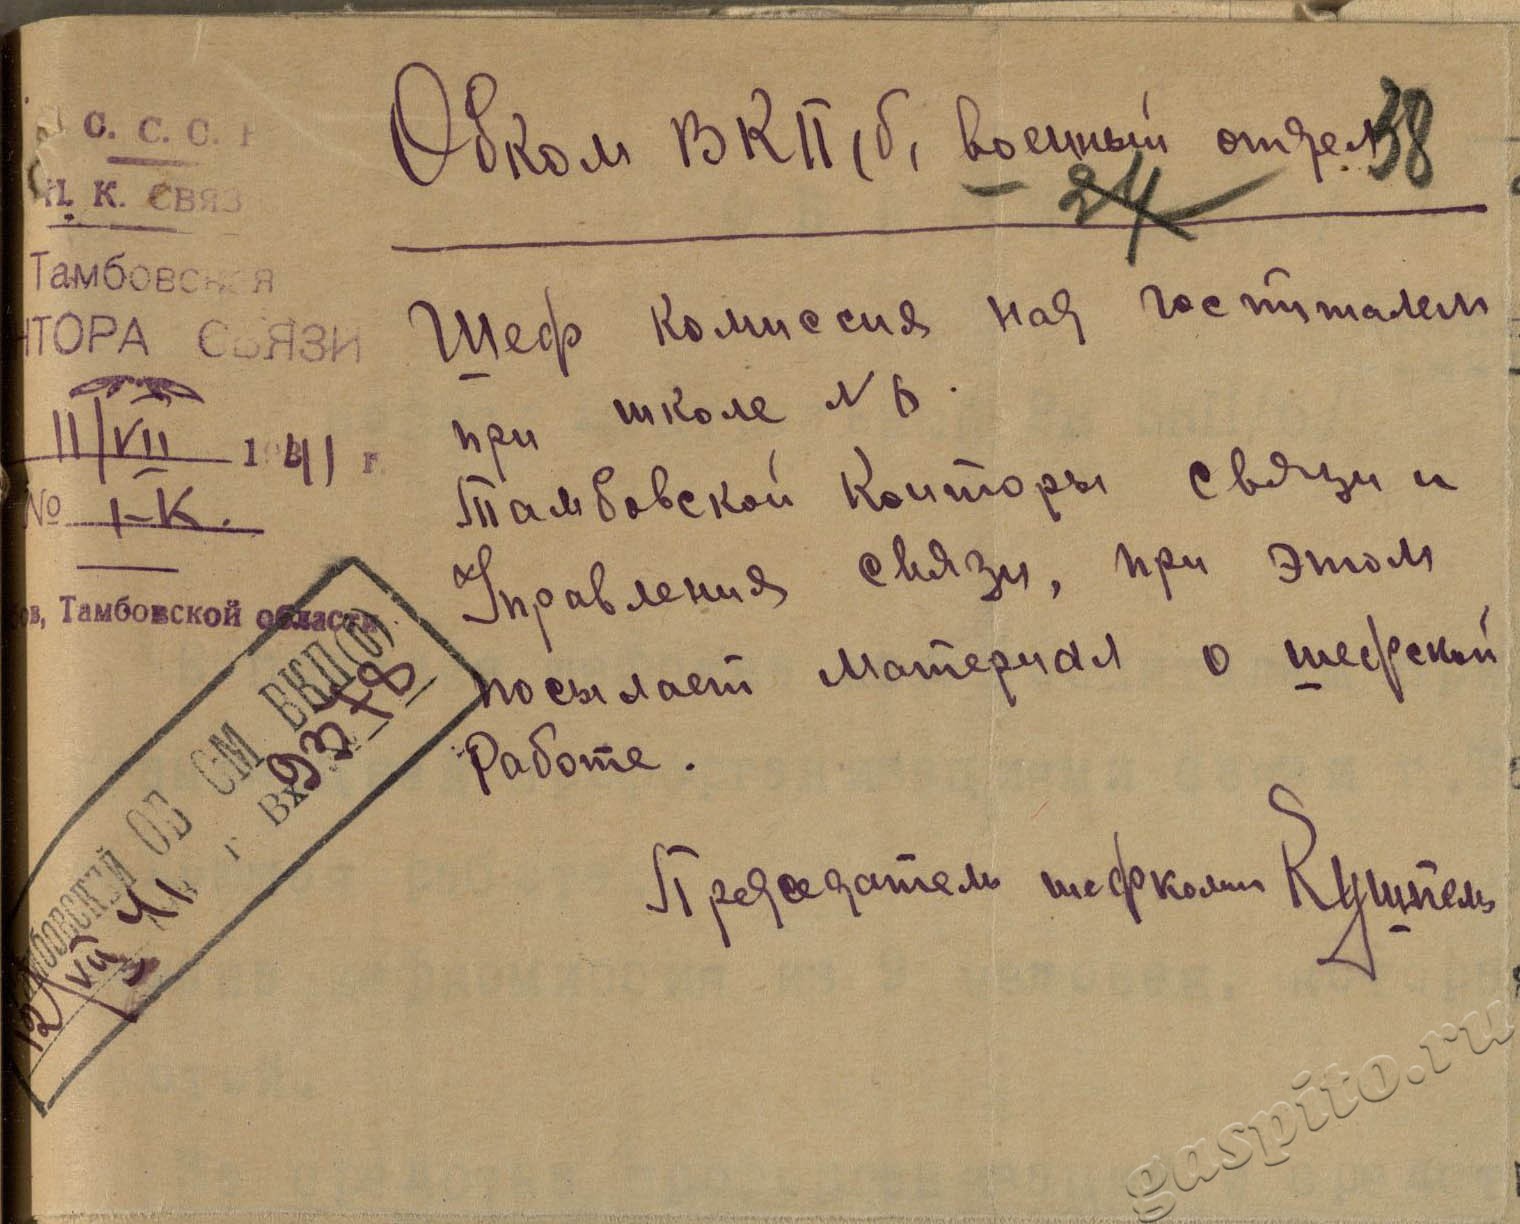 С. С. С. Р
Н. К. СВЯЗ
Тамбовская
НТОРА СВЯЗИ
11/VII 1941 г.
№ 1-К.
ов, Тамбовской области
Обком ВКП(б) военный отдел
38
24
Шеф комиссия над госпиталем
при школе № 6.
Тамбовской Конторы связи и
Управления связи, при этом
посылает материал о шефской
Работе.
Председатель шефкомии Кушпель
ТАМБОВСКИЙ ОБ СМ ВКП(б)
12/VII 41 г. Вх 9378
gaspito.ru